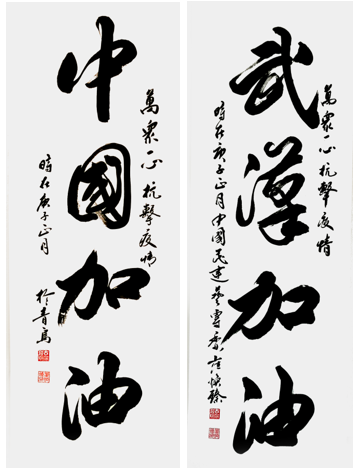 武漢加油
萬衆一心抗擊疫情
時在庚子正月中國民建
中國加油
萬衆一心抗擊疫情
時在庚子正月
於青島